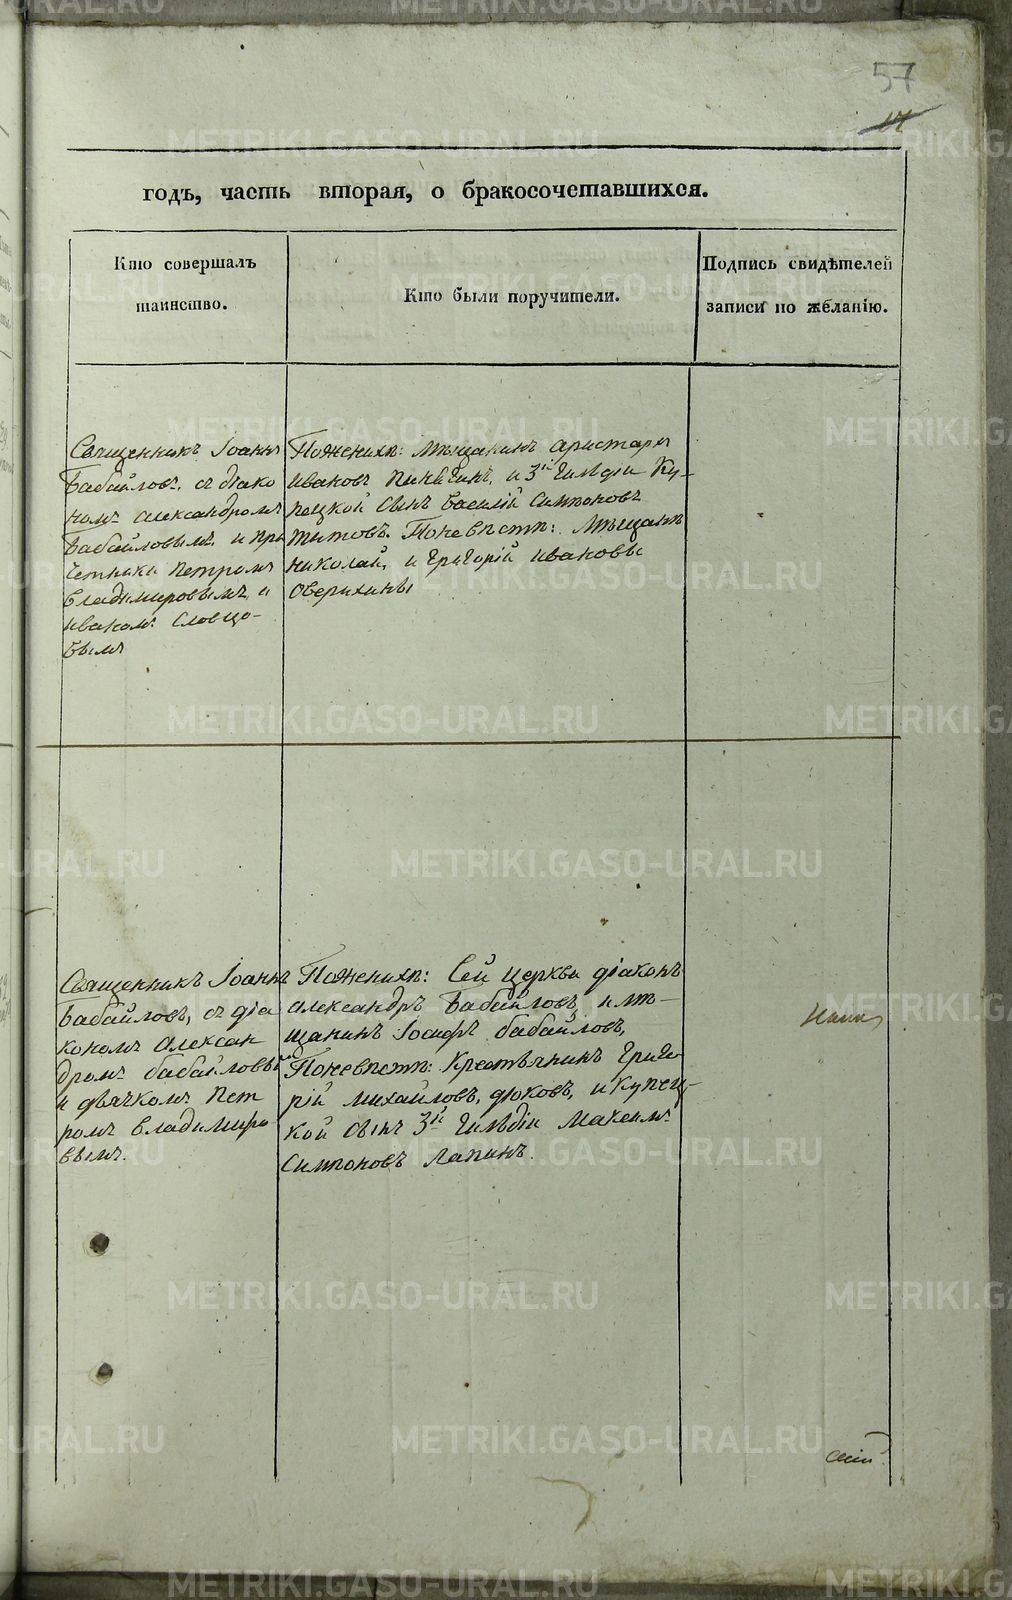 57
17
годъ, часть вторая, о бракосочетавшихся.
Кто совершалъ
таинство.
Кто были поручители.
Подпись свидѣтелей
записи по желанію.
Священникъ Іоаннъ
Бабайловъ, съ діако
номъ Александромъ
Бабайловымъ, и при
четники Петромъ
Владимировымъ, и
Иваномъ Словцо-
вымъ
Поженихѣ: Мѣщанинъ Аристархъ
Ивановъ и 3й Гильдіи Ку-
пецкой сынъ Василій Симоновъ
Титовъ. Поневѣстѣ: Мѣщане
Николай, и Григорій Ивановы
Оверихины
Священникъ Іоаннъ
Бабайловъ, съ діа
кономъ Алексан
дромъ Бабайловы
и дьячкомъ Пет
ромъ Владимиро
вымъ.
Поженихѣ: Сей Церкви діаконъ
Александръ Бабайловъ, и мѣ-
щанинъ Іосифъ Бабайловъ,
Поневѣстѣ: Крестьянинъ Григо
рій Михайловъ Дюковъ, и Купец-
кой сынъ 3й Гильдіи Максимъ
Симоновъ Лапинъ.
METRIKI.GASO-URAL.RU